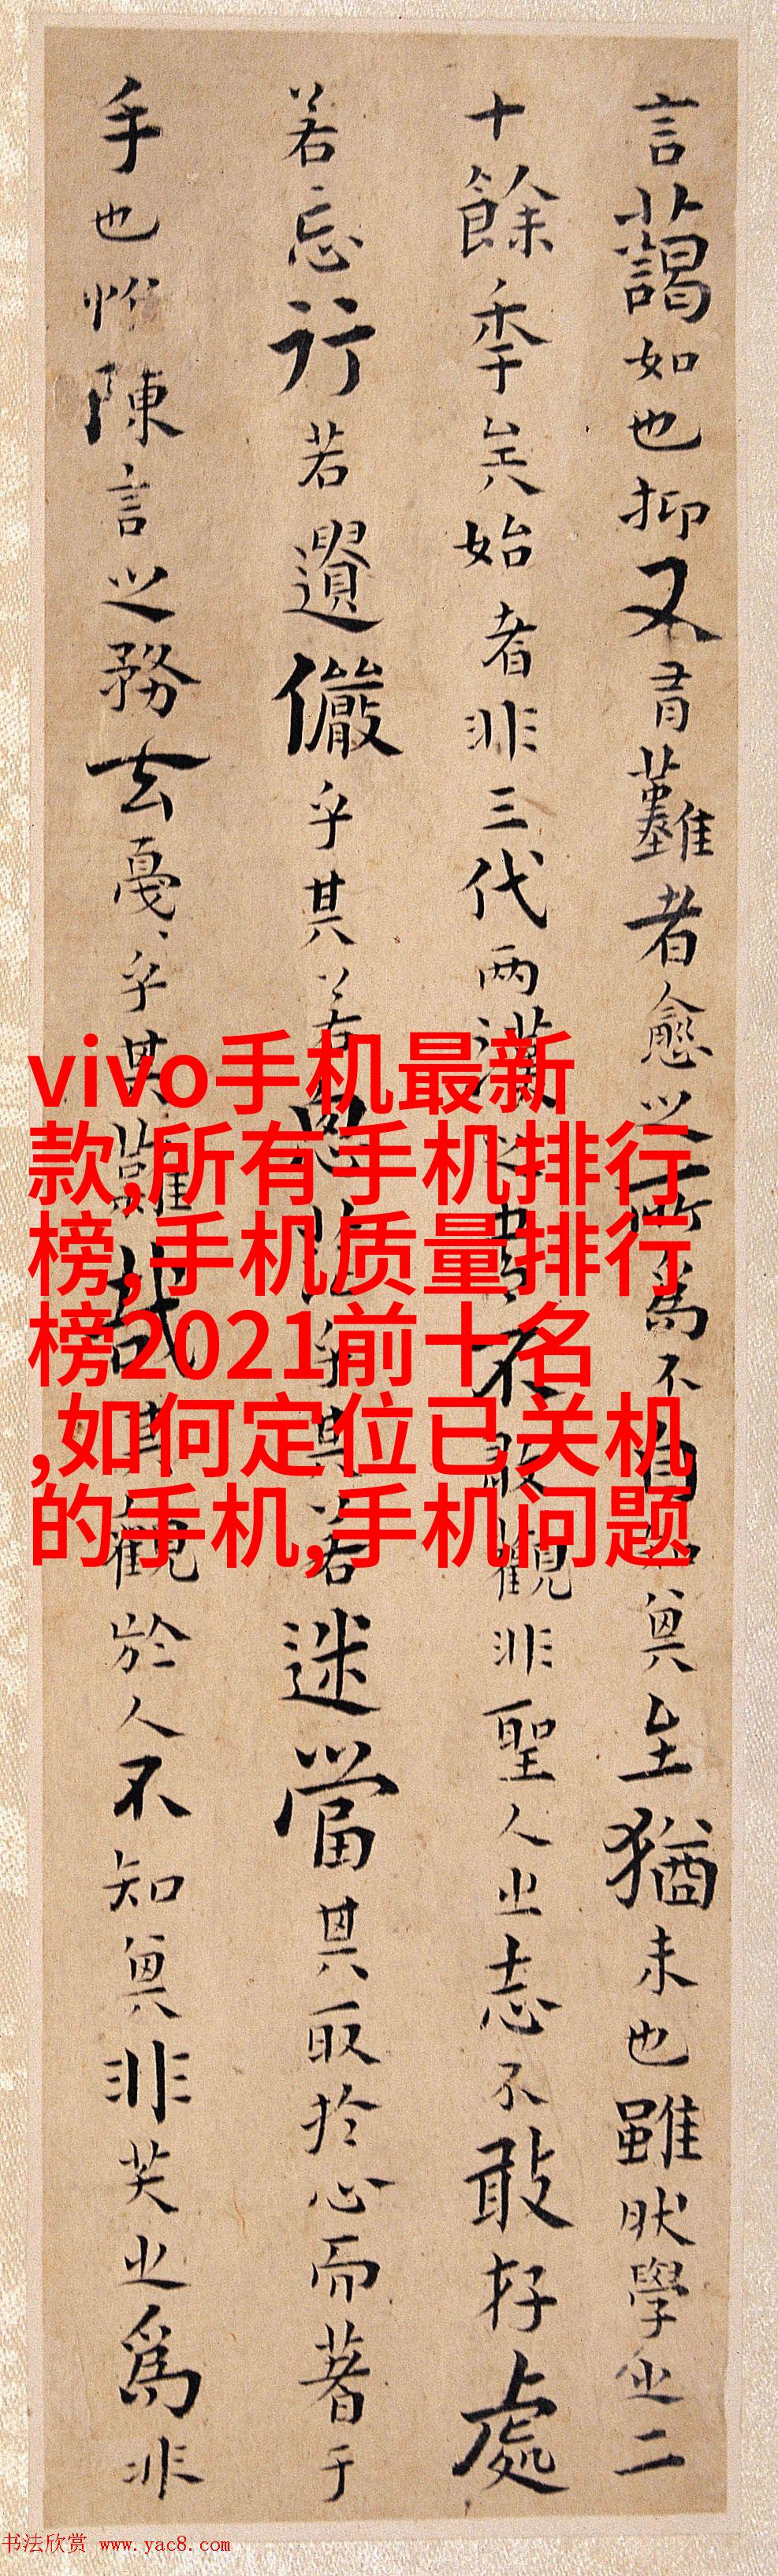 vivo手机最新
款,所有手机排行
榜,手机质量排行
榜2021前十名
,如何定位已关机
的手机,手机问题
言藹如也抑又有難者愈之所爲不自知其至猶未也雖然學之二
十餘年矣始者非三代两漢之書不敢觀非聖人之志不敢存處
若忘行若遺儼乎其若思茫乎其若迷當其取於心而著于
手也惟陳言之務去戛々乎其難哉其觀於人不知其非笑之爲非
书法欣赏 www.yac8.com